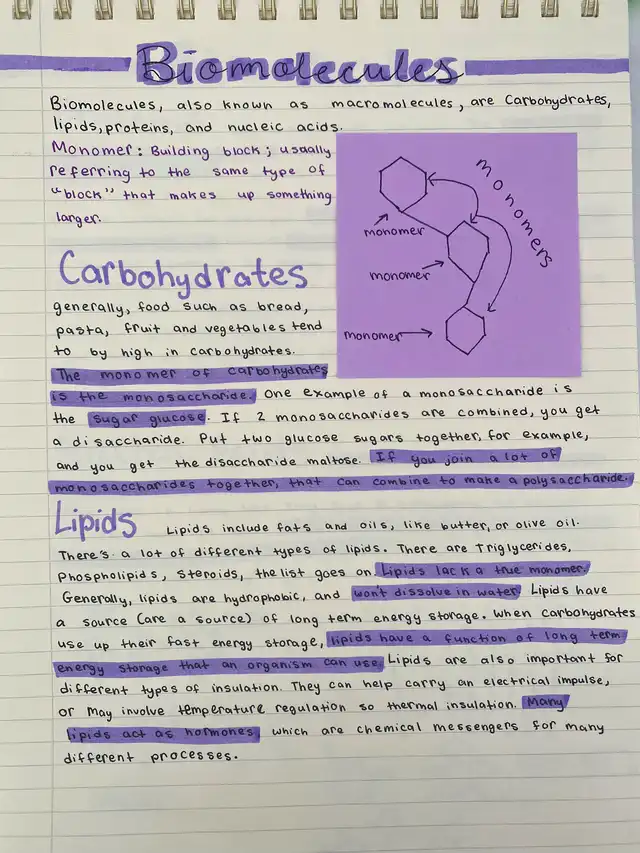 Biomolecules
Biomolecules, also known as macromolecules, are Carbohydrates,
lipids, proteins, and nucleic acids.
Monomer: Building block; usually
referring to the same type of
"block" that makes up something
larger.
monomers
monomer
monomer
monomer
Carbohydrates
generally, food such as bread,
pasta, fruit and vegetables tend
to by high in carbohydrates.
The monomer of carbohydrates
is the monosaccharide. One example of a monosaccharide is
the sugar glucose. If 2 monosaccharides are combined, you get
a disaccharide. Put two glucose sugars together, for example,
and you get the disaccharide maltose. If you join a lot of
monosaccharides together, that can combine to make a polysaccharide.
Lipids
Lipids include fats and oils, like butter, or olive oil.
There's a lot of different types of lipids. There are Triglycerides,
Phospholipids, Steroids, the list goes on. Lipids lack a true monomer.
Generally, lipids are hydrophobic, and won't dissolve in water. Lipids have
a source (are a source) of long term energy storage. When carbohydrates
use up their fast energy storage, lipids have a function of long term
energy storage that an organism can use. Lipids are also important for
different types of insulation. They can help carry an electrical impulse,
or may involve temperature regulation so thermal insulation. Many
lipids act as hormones, which are chemical messengers for many
different processes.